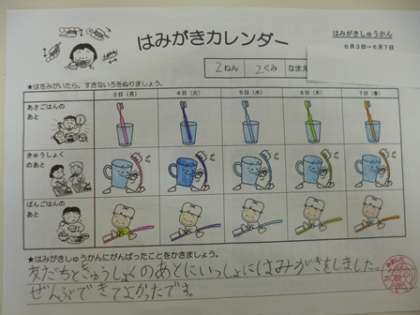 はみがきカレンダー
はみがきしゅうかん
6月3日~6月7日
2ねん 2くみ なまえ
★はをみがいたら、すきないろをぬりましょう。
3日(月) 4日(火) 5日(水) 6日(木) 7日(金)
あさごはんの
あと
きゅうしょく
のあと
ばんごはんの
あと
★はみがきしゅうかんにがんばったことをかきましょう。
友だちときゅうしょくのあとにいっしょにはみがきをしました。
ぜんぶできてよかったです。